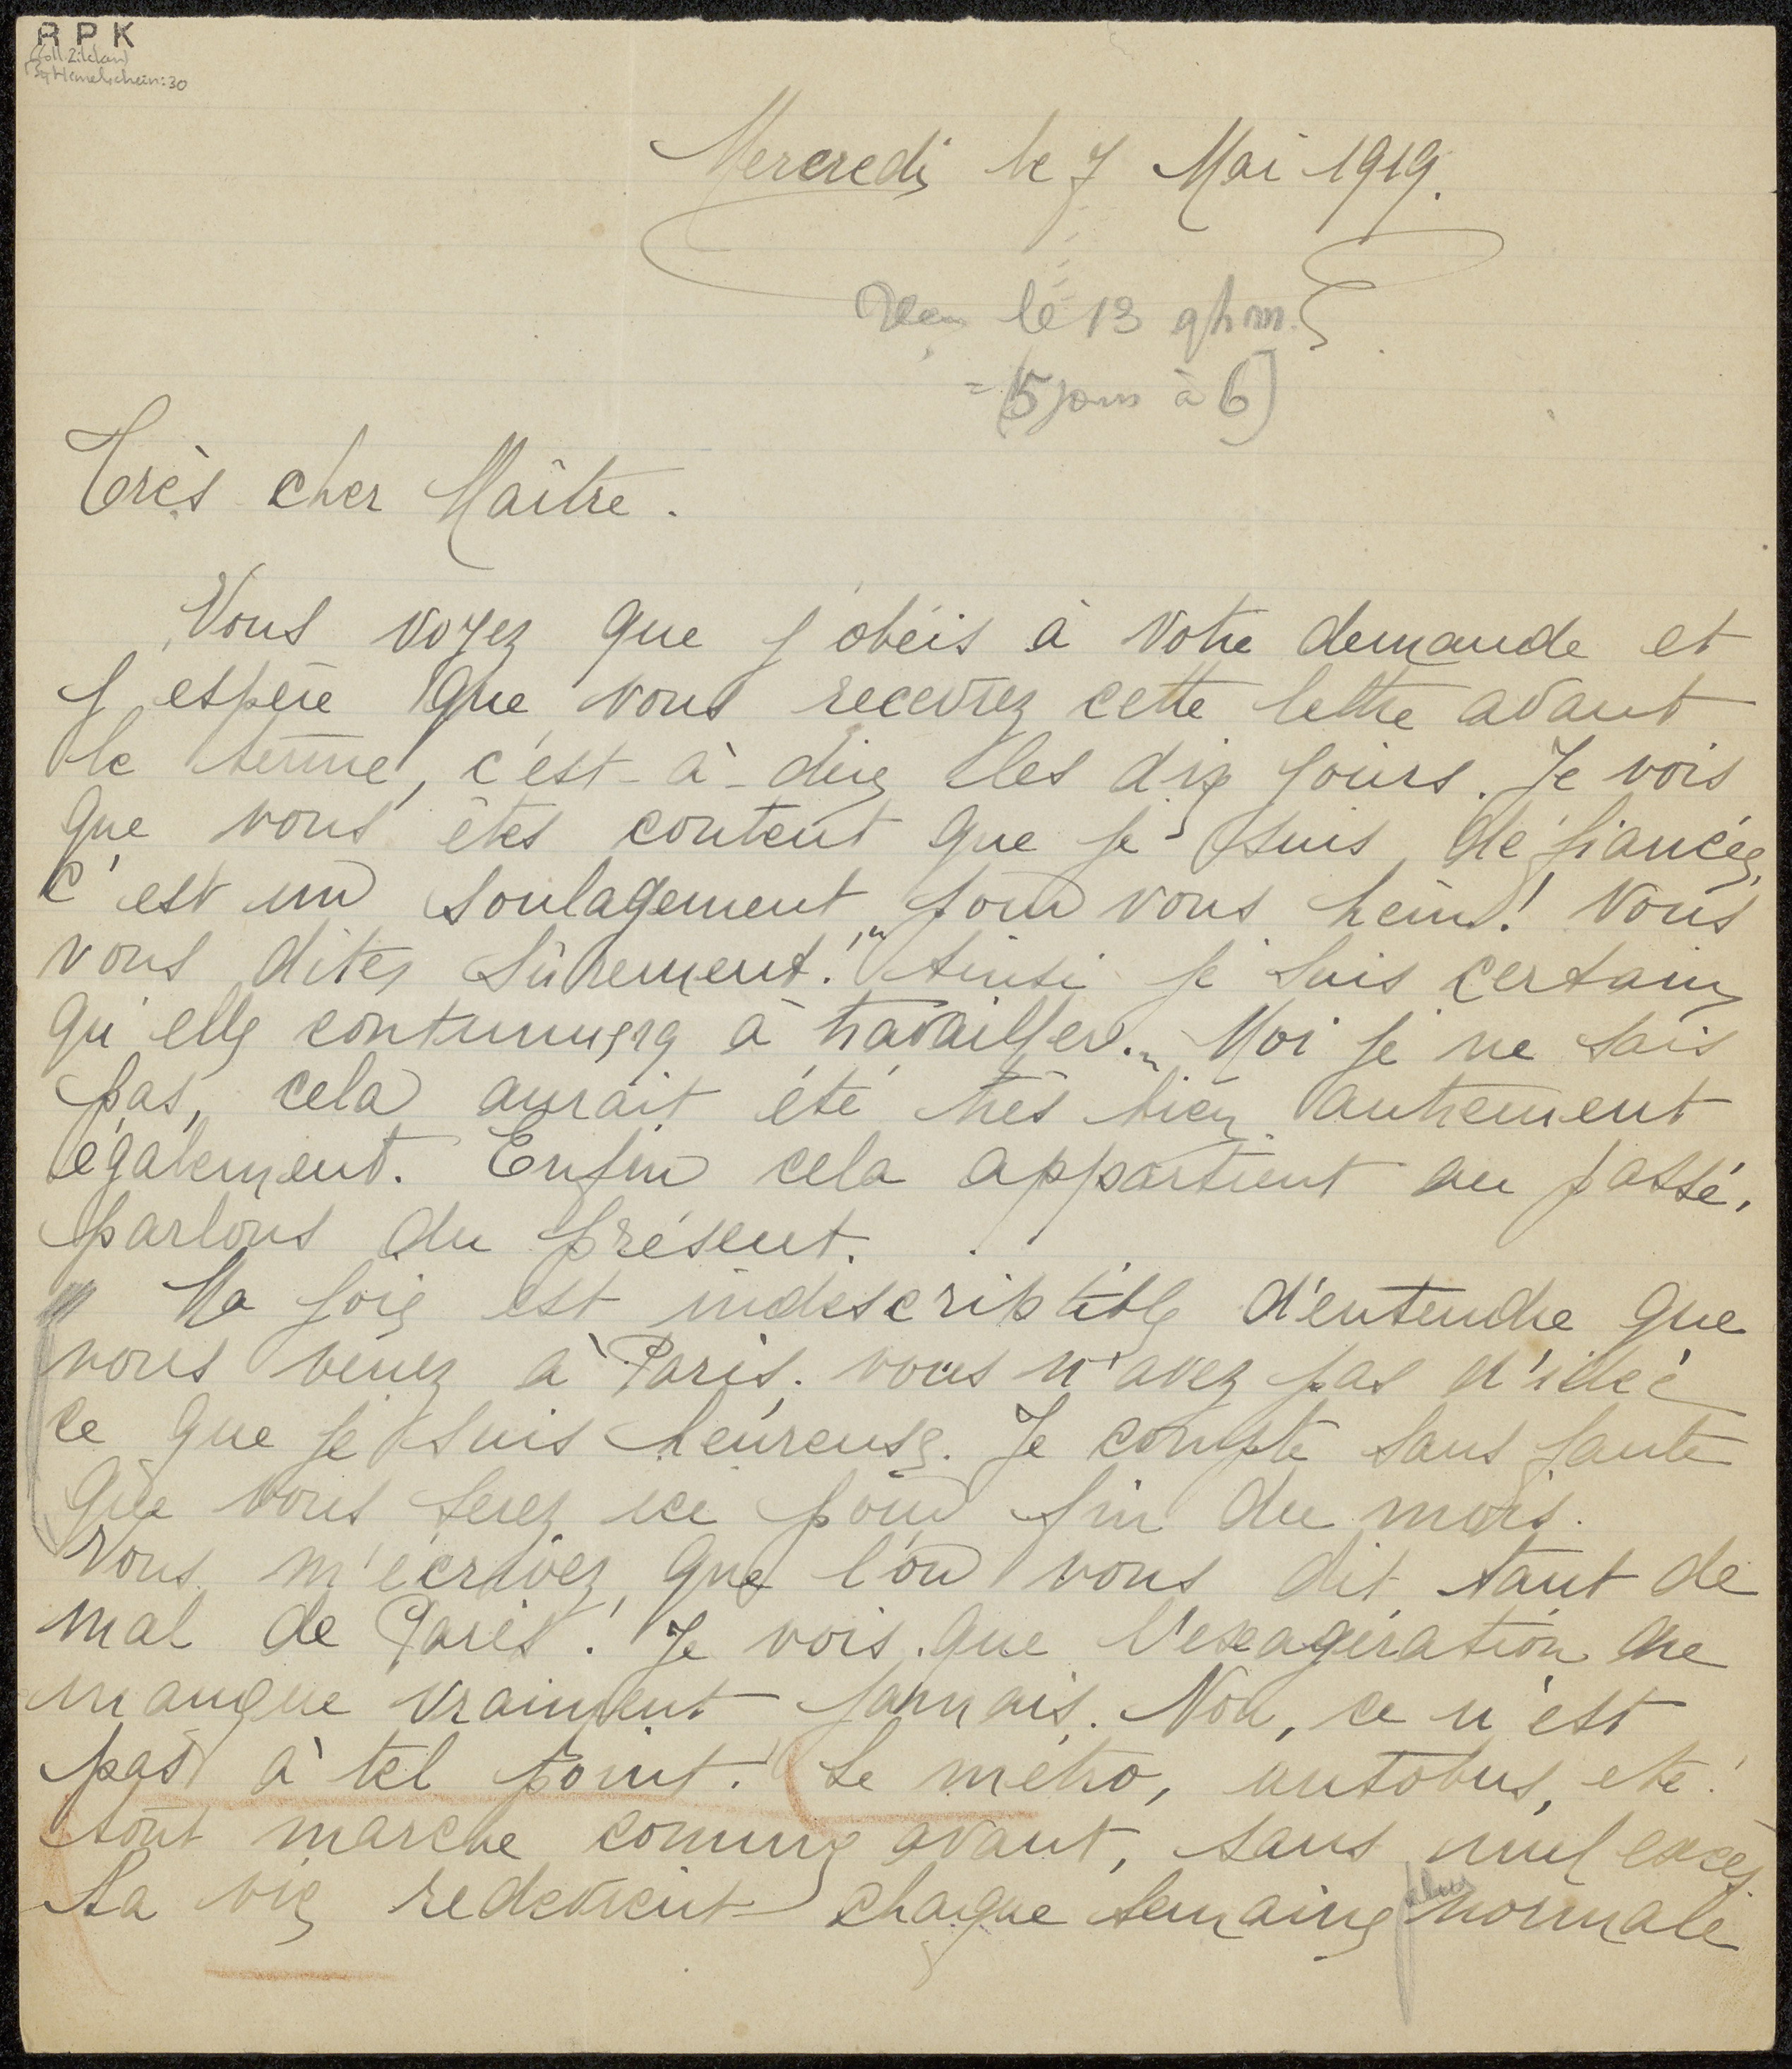 RPK
(Coll. Zilcken)
Mercredi le 7 Mai 1919.
le 13 9 h m.
= (5 jours à 6)
Très cher Maître.
Vous voyez que j'obéis à votre demande et
j'espère que vous recevrez cette lettre avant
le terme, c'est-à-dire les dix jours. Je vois
que vous êtes content que je suis défiancée,
c'est un soulagement pour vous hein! Vous
vous dites sûrement! "Ainsi je suis certain
qu'elle continuera à travailler." Moi je ne sais
pas, cela aurait été très bien autrement
également. Enfin cela appartient au passé,
parlons du présent.
Ma joie est indescriptible d'entendre que
vous venez à Paris. vous n'avez pas d'idée
ce que je suis heureuse. Je compte sans faute
que vous serez ici pour fin du mois.
Vous m'écrivez, que l'on vous dit tant de
mal de Paris! Je vois que l'exagération ne
manque vraiment jamais. Non, ce n'est
pas à tel point! Le métro, autobus, etc!
tout marche comme avant, sans nul excès.
La vie redevient chaque semaine plus normale